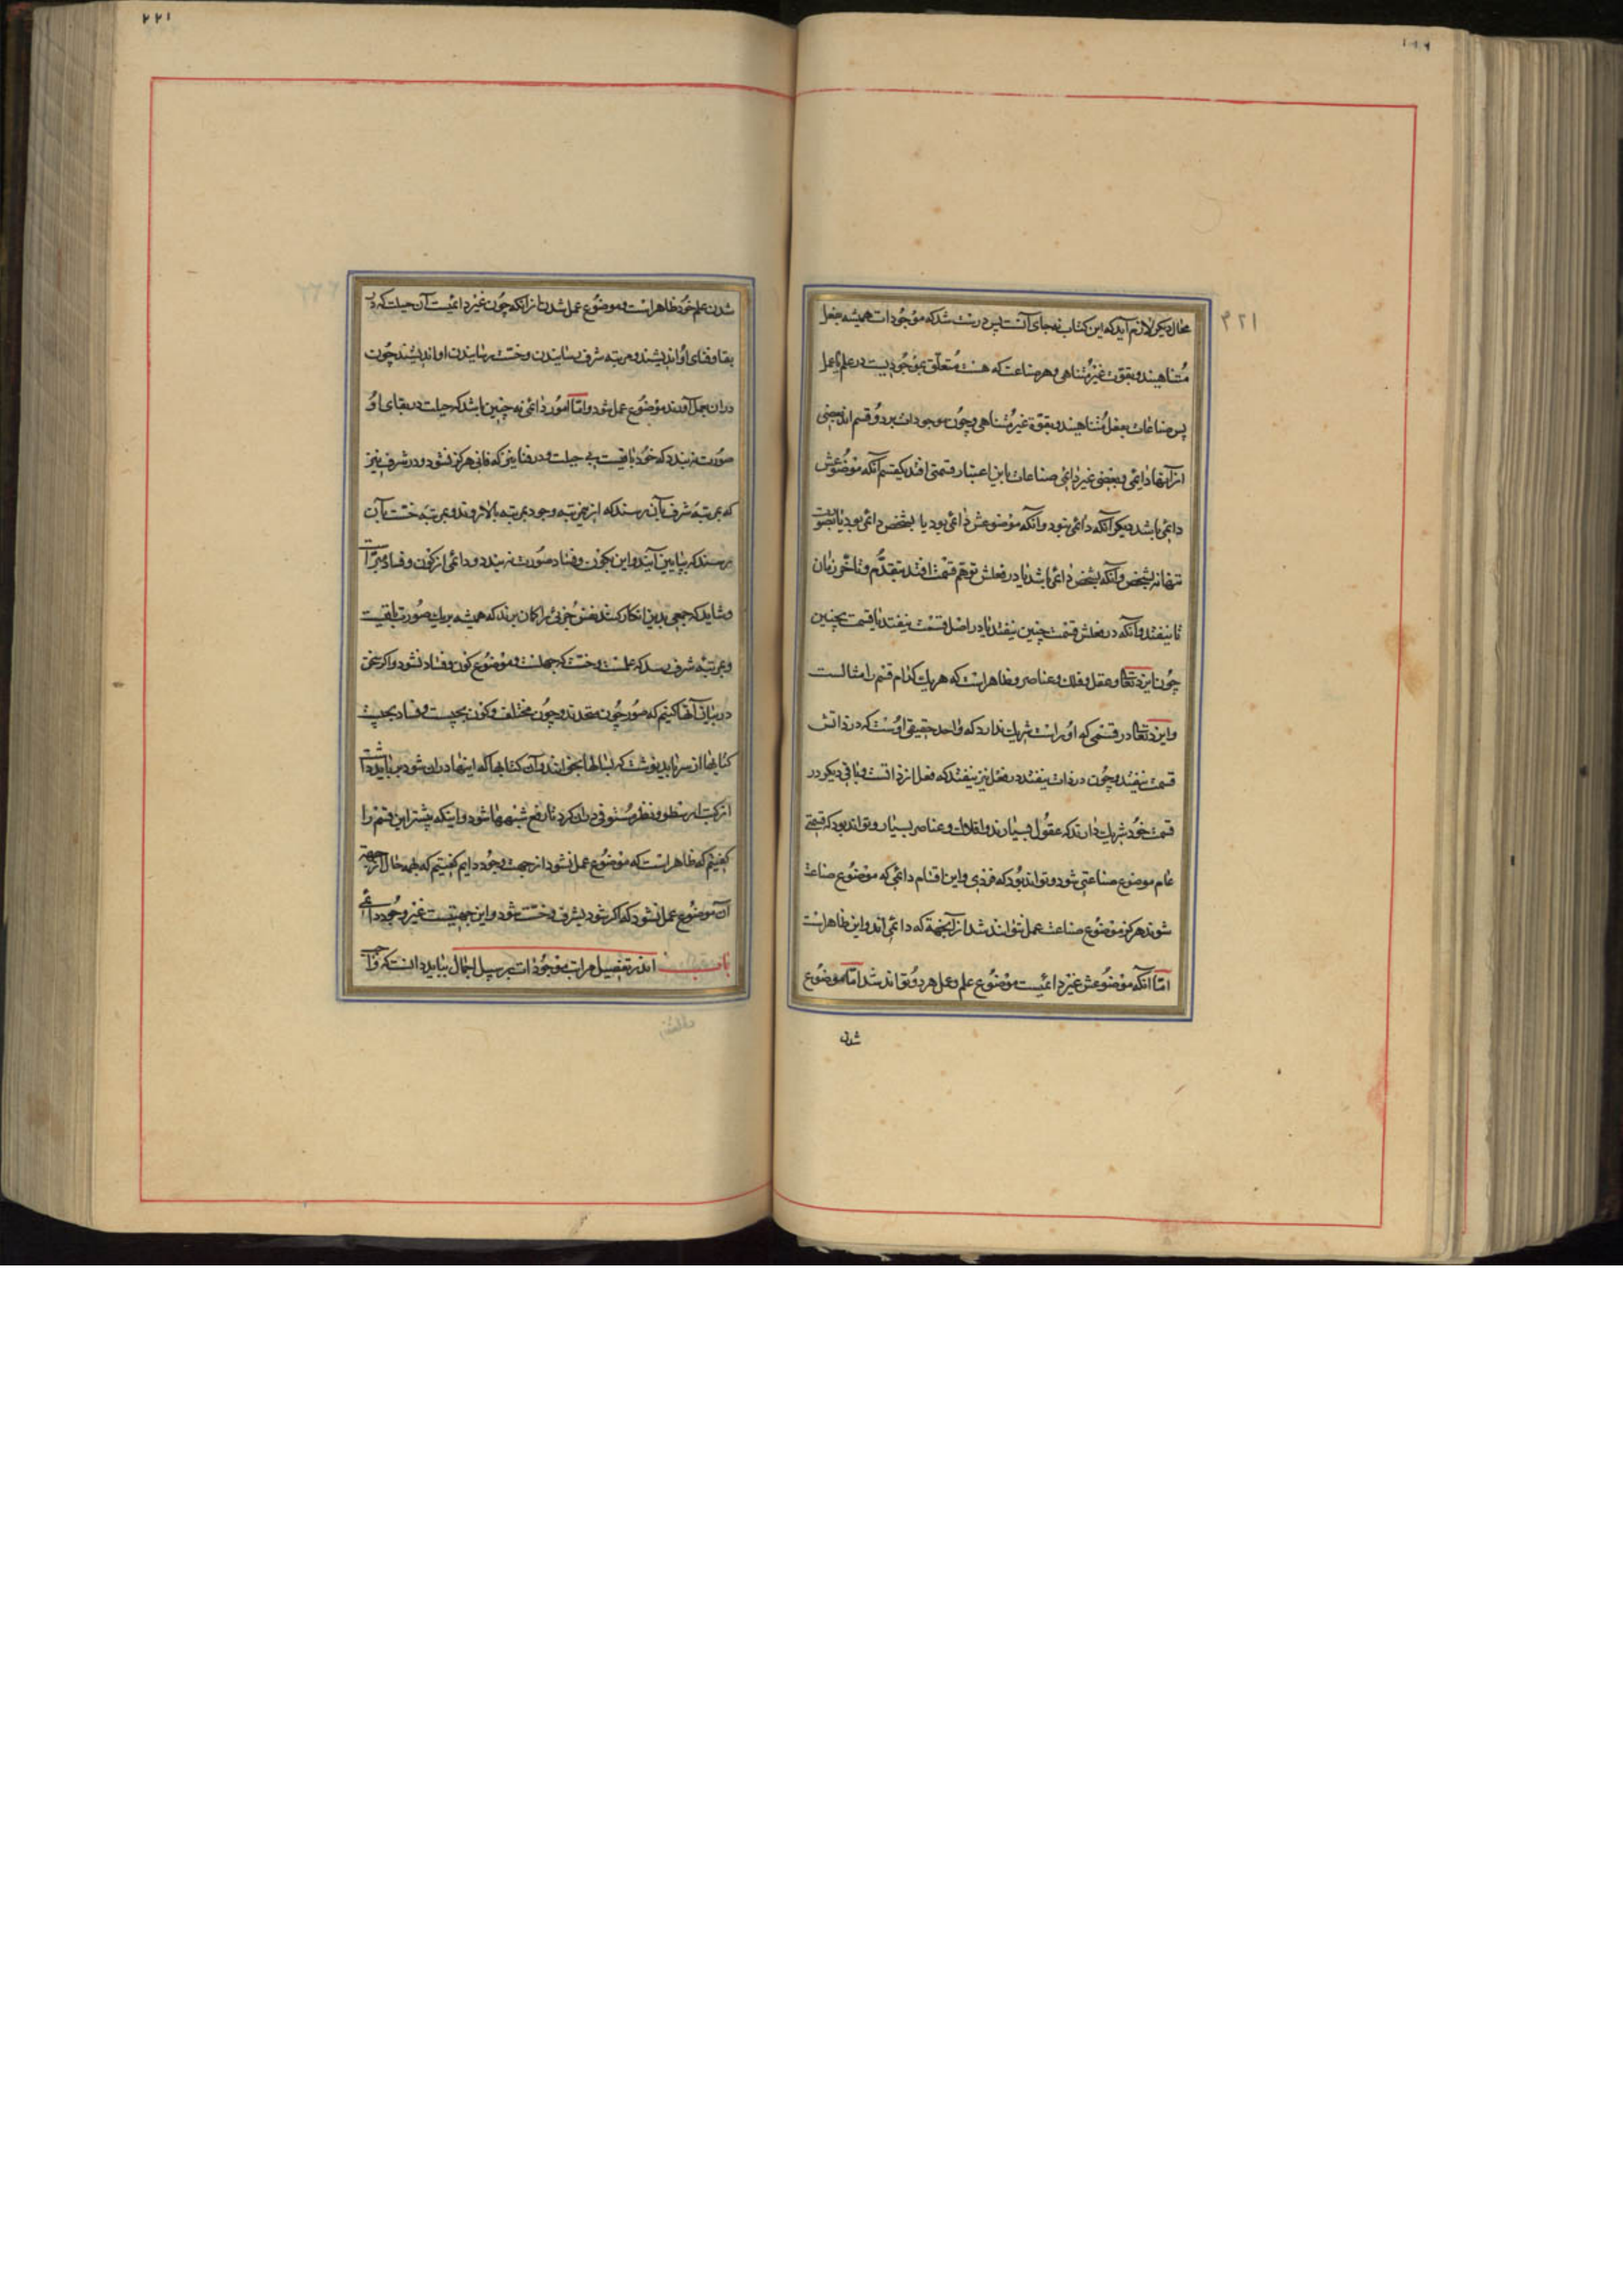 محال دیکر لازم آید که این کتاب نه جای آنست پس درست شد که موجودات همیشه بفعل
متناهیند و بقوت غیر متناهی و هر صناعت که هست متعلق بموجودیست در علم یا عمل
پس صناعات بفعل متناهیند و بقوة غیر متناهی و چون موجودات بر دو قسم اند بعضی
از آنها دایمی و بعضی غیر دائمی صناعات باین اعتبار قسمتی افتد یکقسم آنکه موضوعش
دائمی باشد دیکر آنکه دائمی نبود و آنکه موضوعش دائمی بود یا بشخص دائمی بود یا بنوع
تنها نه بشخص و آنکه بشخص دائمی باشد یا در فعلش توهم قسمت افتد بتقدم و تاخر زمان
تا نیفتد و آنکه در فعلش قسمت چنین نیفتد یا در اصل قسمت نیفتد یا قسمت بچنین
چون ایزد تعالی و عقل و فلک و عناصر و ظاهر است که هر یک کدام قسم را مثالست
و ایزد تعالی در قسمی که او راست شریک ندارد که واحد حقیقی اوست که در ذاتش
قسمت نیفتد و چون در ذات نیفتد در فعل نیز نیفتد که فعل از ذاتست و باقی دیکر در
قسمت خود شریک دارند که عقول بسیارند و افلاک و عناصر بسیار و تواند بود که قسمتی
عام موضوع صناعتی شود و تواند بود که فردی و این اقسام دائمی که موضوع صناعت
شوند هرکز موضوع صناعت عمل نتوانند شد از آنجهة که دائمی اند و این ظاهر است
اما آنکه موضوعش غیر دائمیست موضوع علم و عمل هر دو تواند شد اما موضوع
شدن
۲۲۱
شدن علم خود ظاهر است و موضوع عمل شدن از آنکه چون غیر دائمیست آن حیلت که در
بقا و فنای او اندیشند و مرتبه شرف رسایندن و خست رسایندن او اندیشند چون
در آن بعمل آورند موضوع عمل شود و اما امور دائمی نه چنین باشد که حیلت در بقای او
صورت نه بندد که خود باقیست بی حیلت و در فنا نیز که فانی هرکز نشود و در شرف نیز
که بمرتبه شرف بآن رسند که از مرتبه وجود بمرتبه بالاتر روند و بمرتبه خست بآن
رسند که بپایین آیند و این بکون و فساد صورت نه بندد و دائمی از کون و فساد مبراست
و شاید که جمعی بدین انکار کنند نفس جزئی را کمان برند که همیشه بر یک صورت باقیست
و بمرتبه شرف رسد که علمست و خست که جهلست و موضوع کون و فساد نشود و اکر سخن
در بیان آنها کنیم که صور چون متعددند و چون مختلف و کون بچیست و فساد بچیست
کتابها از سر باید نوشت که بسالها بخوانند و آن کتابها که اینها در آن شود می باید داشت
از کتب ارسطو و نظر مستوفی در آن کرد تا رفع شبهها شود و اینکه پیشتر این قسم را
کفتیم که ظاهر است که موضوع عمل نشود از جهت وجود دایم کفتیم که بهمه حال اکر نه
آن موضوع عمل نشود که اکر شود بشرف و خست شود و این جهتیست غیر وجود دائمی
باب اندر تفصیل مراتب موجودات بر سبیل اجمال بباید دانست که